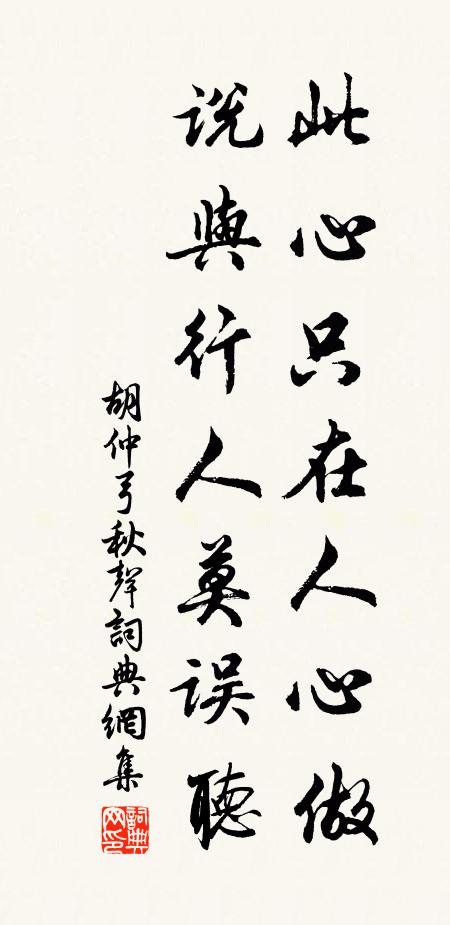 此心只在人心做
说與行人莫误聽
胡仲弓秋聲詞典網集
詞典网印